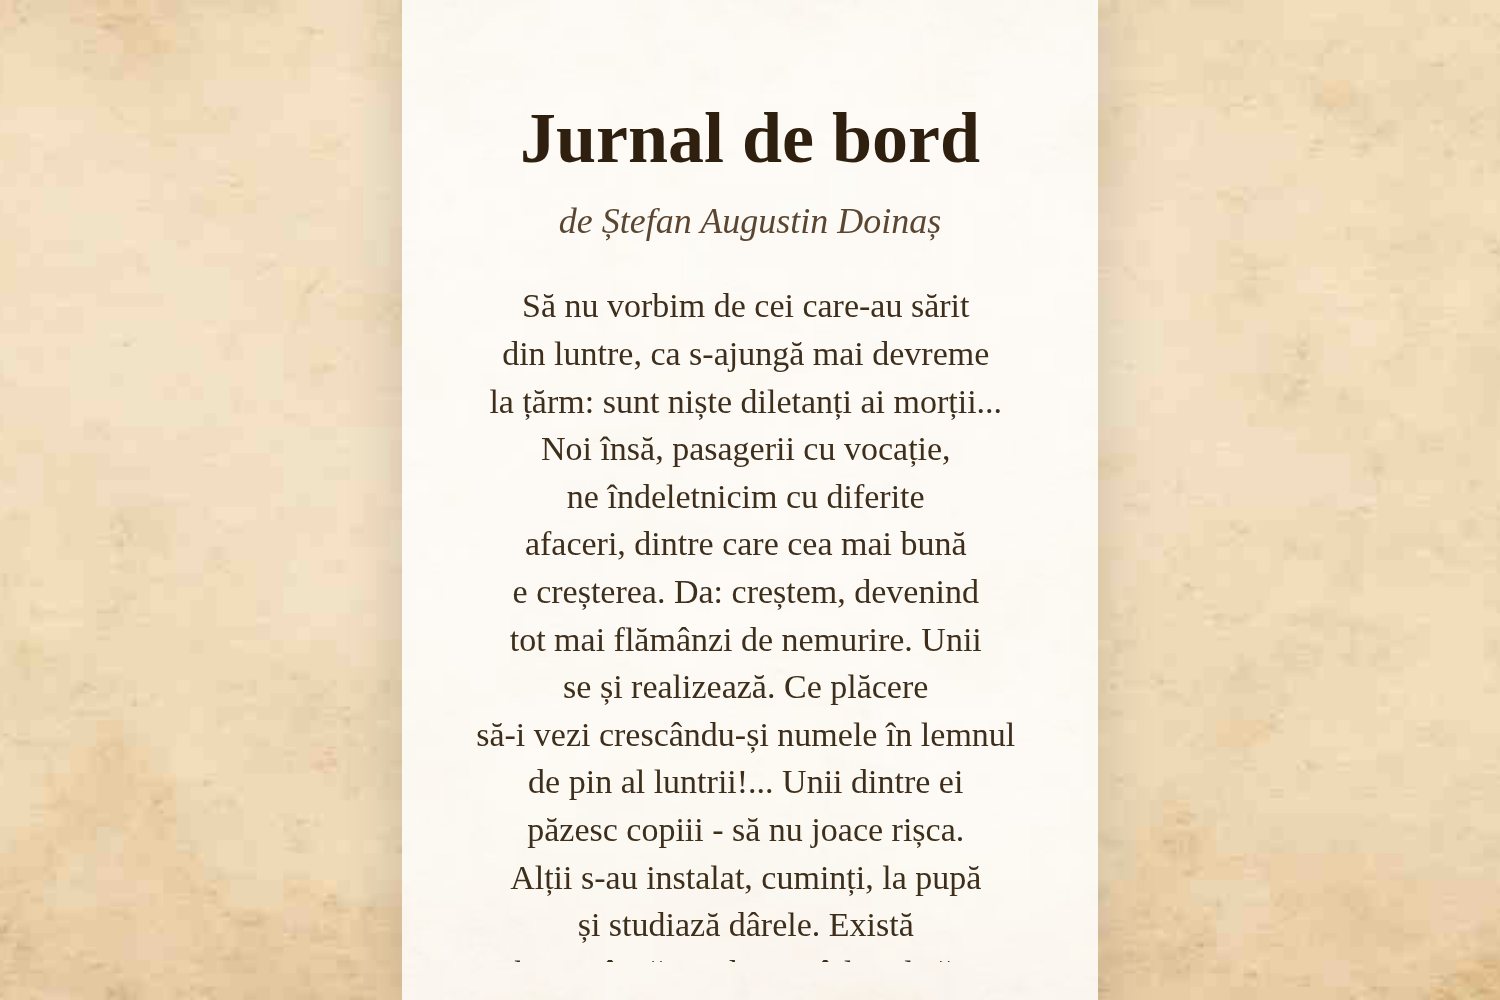 Jurnal de bord
de Ștefan Augustin Doinaș
Să nu vorbim de cei care-au sărit
din luntre, ca s-ajungă mai devreme
la țărm: sunt niște diletanți ai morții...
Noi însă, pasagerii cu vocație,
ne îndeletnicim cu diferite
afaceri, dintre care cea mai bună
e creșterea. Da: creștem, devenind
tot mai flămânzi de nemurire. Unii
se și realizează. Ce plăcere
să-i vezi crescându-și numele în lemnul
de pin al luntrii!... Unii dintre ei
păzesc copiii - să nu joace rișca.
Alții s-au instalat, cuminți, la pupă
și studiază dârele. Există